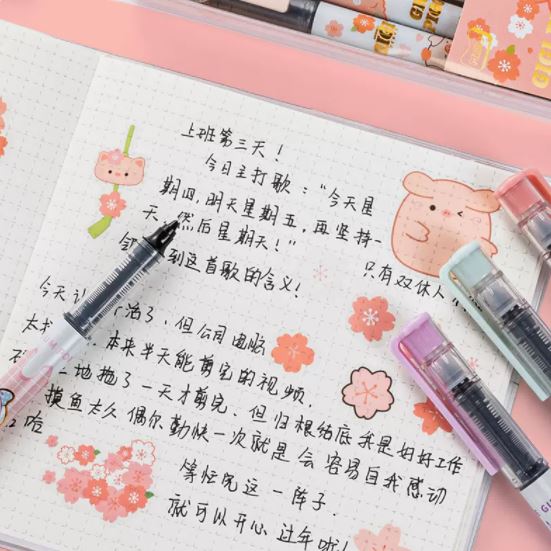 上班第三天！
今日主打歌："今天星
期四，明天星期五，再坚持一
天，然后星期天！"
到这首歌的含义！
只有双休人
今天
治了，但公司电脑
太
本来半天能剪完的视频，
地拖了一天才剪完，但归根结底我是好好工作
摸鱼太久偶尔勤快一次就是会容易自我感动
哈
等忙完这一阵子，
就可以开心过年啦！